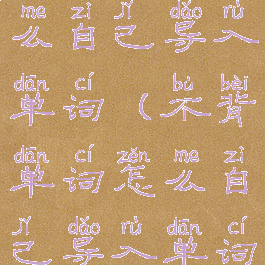 me zì jǐ dǎo rù
么自己导入
dān cí bù bèi
单词（不背
dān cí zěn me zì
单词怎么自
jǐ dǎo rù dān cí
己导入单词